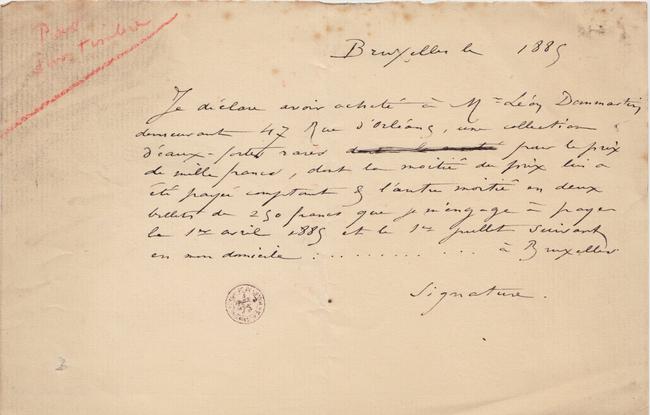 Pas
sur timbre
Bruxelles le 1885
Je déclare avoir acheté à Mr Léon Dommartin,
demeurant 47 Rue d'Orléans, une collection
d'eaux-fortes rares pour le prix
de mille francs, dont la moitié du prix lui a
été payée comptant & l'autre moitié en deux
billets de 250 francs que je m'engage à payer
le 1er avril 1885 et le 1er juillet suivant
en mon domicile . . . . . . . . . . . à Bruxelles
Signature.